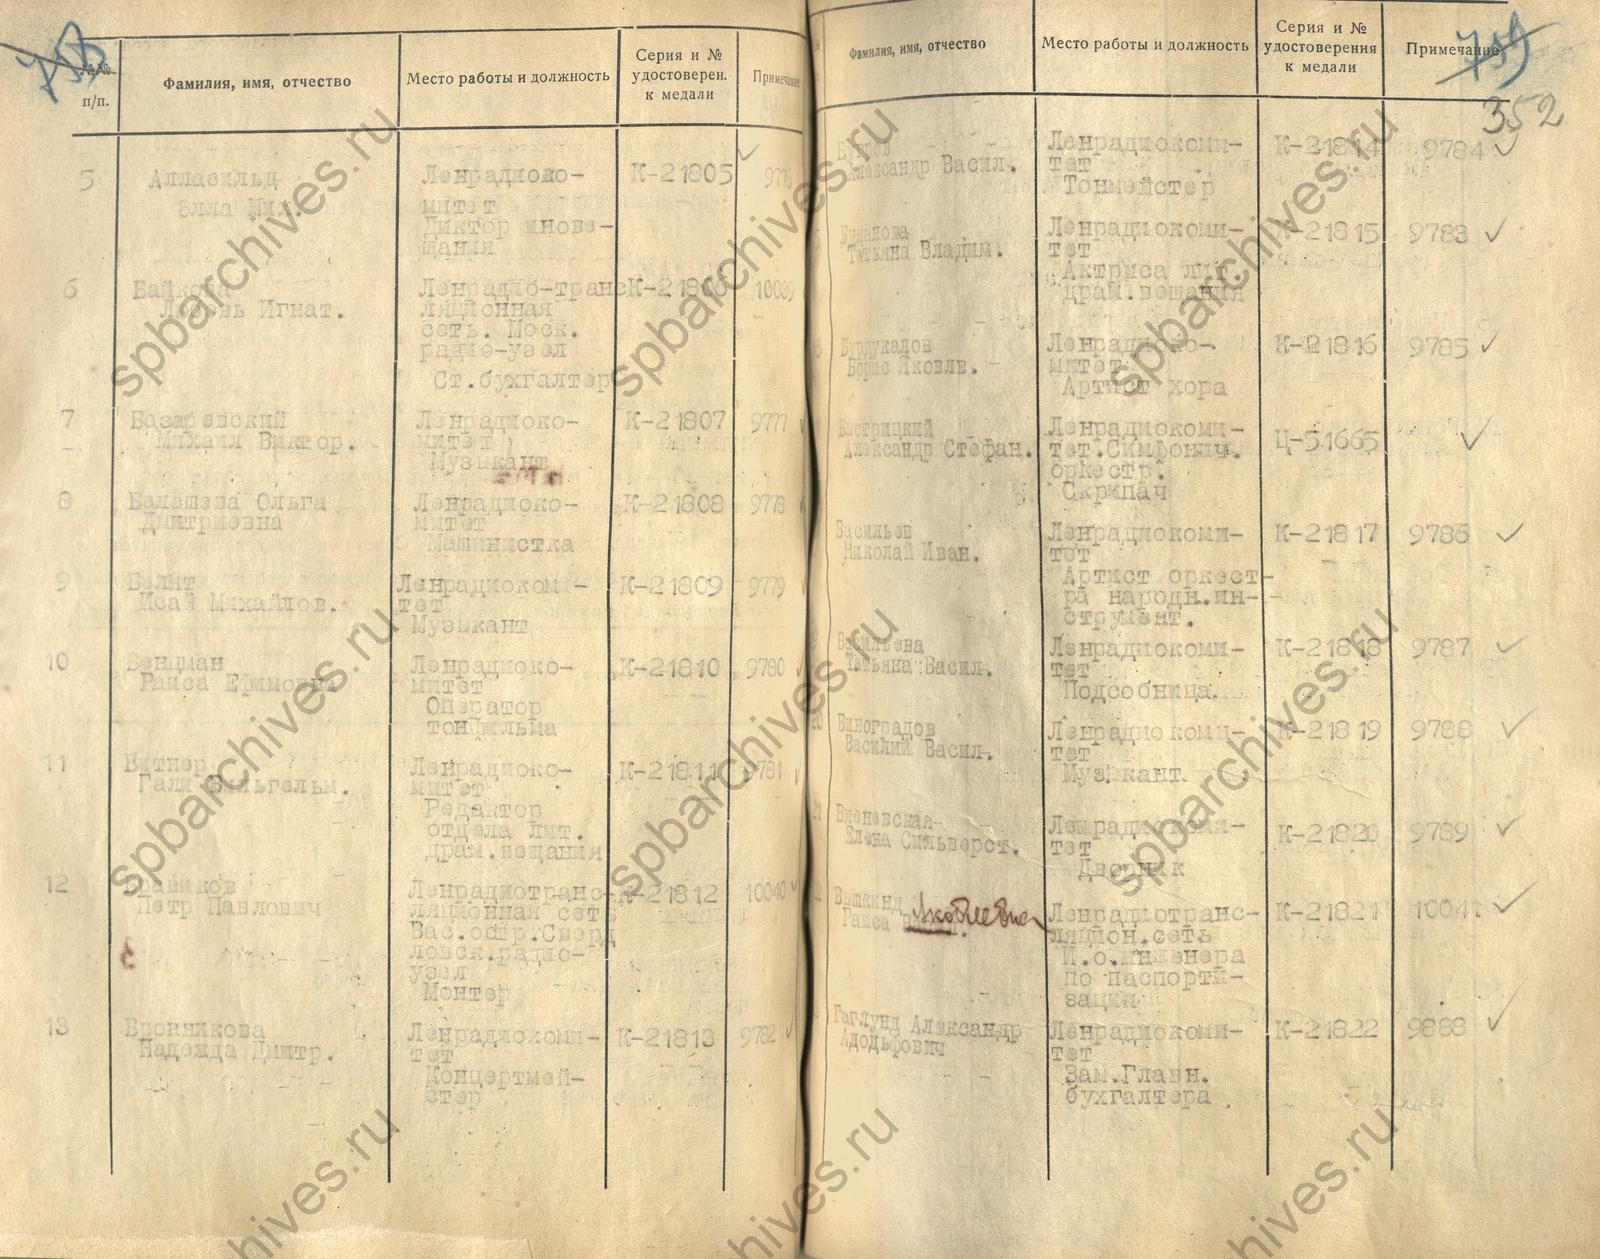 №№
п/п.
Фамилия, имя, отчество
Место работы и должность
Серия и №
удостоверен.
к медали
Примечание
5
Элла Мих.
Ленрадиоко-
митет
Диктор инове-
щания
К-21805
9776
6
Байкова
Любовь Игнат.
Ленрадио-транс
ляционная
сеть. Моск.
радио-узел
Ст.бухгалтер
К-21806
10039
7
Базаревский
Михаил Виктор.
Ленрадиоко-
митет
Музыкант
К-21807
9777
8
Балашева Ольга
Дмитриевна
Ленрадиоко-
митет
Машинистка
К-21808
9778
9
Белят
Исай Михайлов.
Ленрадиокоми-
тет
Музыкант
К-21809
9779
10
Бенцман
Раиса Ефимовна
Ленрадиоко-
митет
Оператор
тонфильма
К-21810
9780
11
Битнер
Гали Вильгельм.
Ленрадиоко-
митет
Редактор
отдела лит.
драм.вещания
К-21811
9781
12
Бравиков
Петр Павлович
Ленрадиотранс-
ляционная сеть
Вас.остр.Сверд
ловск.радио-
узел
Монтер
К-21812
10040
13
Бройникова
Надежда Дмитр.
Ленрадиокоми-
тет
Концертмей-
стер
К-21813
9782
Фамилия, имя, отчество
Место работы и должность
Серия и №
удостоверения
к медали
Примечание
759
352
Александр Васил.
Ленрадиокоми-
тет
Тонмейстер
К-21814
9784
Буданова
Татьяна Владим.
Ленрадиокоми-
тет
Актриса лит.
драм.вещания
К-21815
9783
Бурдукалов
Борис Яковлв.
Ленрадиоко-
митет
Артист хора
К-21816
9785
Быстрицкий
Александр Стефан.
Ленрадиокоми-
тет.Симфонич.
оркестр.
Скрипач
Ц-51665
Васильев
Николай Иван.
Ленрадиокоми-
тет
Артист оркест-
ра народн.ин-
струмент.
К-21817
9786
Васильева
Татьяна Васил.
Ленрадиокоми-
тет
Подсобница.
К-21818
9787
20
Виноградов
Василий Васил.
Ленрадиокоми-
тет
Музыкант
К-21819
9788
21
Елена Сильверст.
Ленрадиокоми-
тет
Дворник
К-21820
9789
Вышкинд
Раиса
Яковлевна
Ленрадиотранс-
ляцион.сеть
И.о.инженера
по паспорти-
зации
К-21821
10041
Гаглунд Александр
Адольфович
Ленрадиокоми-
тет
Зам.Главн.
бухгалтера
К-21822
9888
spbarchives.ru
spbarchives.ru
spbarchives.ru
spbarchives.ru
spbarchives.ru
spbarchives.ru